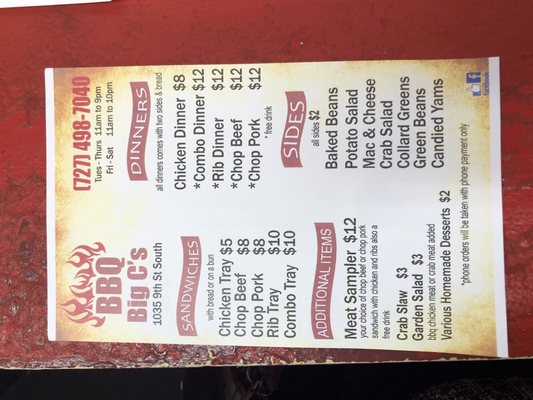 BBQ
Big C's
1035 9th St South
(727) 498-7040
Tues - Thurs 11am to 9pm
Fri - Sat 11am to 10pm
SANDWICHES
with bread or on a bun
Chicken Tray $5
Chop Beef $8
Chop Pork $8
Rib Tray $10
Combo Tray $10
DINNERS
all dinners comes with two sides & bread
Chicken Dinner $8
*Combo Dinner $12
*Rib Dinner $12
*Chop Beef $12
*Chop Pork $12
* free drink
ADDITIONAL ITEMS
Meat Sampler $12
your choice of chop beef or chop pork
sandwich with chicken and ribs also a
free drink
Crab Slaw $3
Garden Salad $3
bbq chicken meat or crab meat added
Various Homemade Desserts $2
SIDES
all sides $2
Baked Beans
Potato Salad
Mac & Cheese
Crab Salad
Collard Greens
Green Beans
Candied Yams
*phone orders will be taken with phone payment only